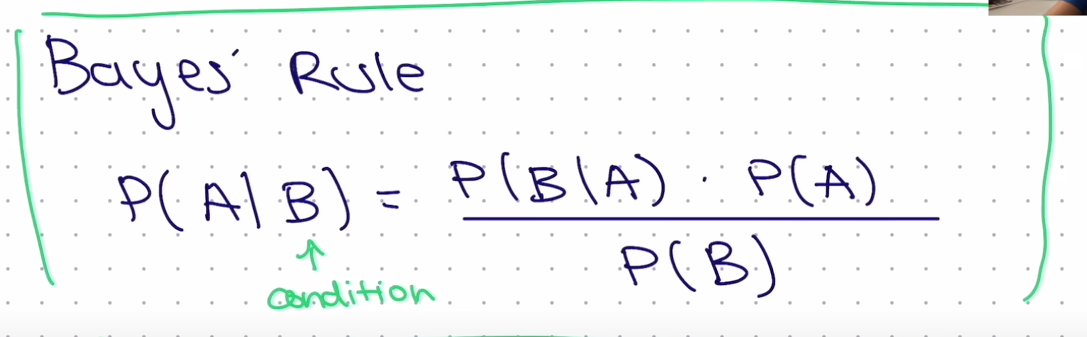 Bayes' Rule
P(A|B) = P(B|A) · P(A) / P(B)
↑
condition